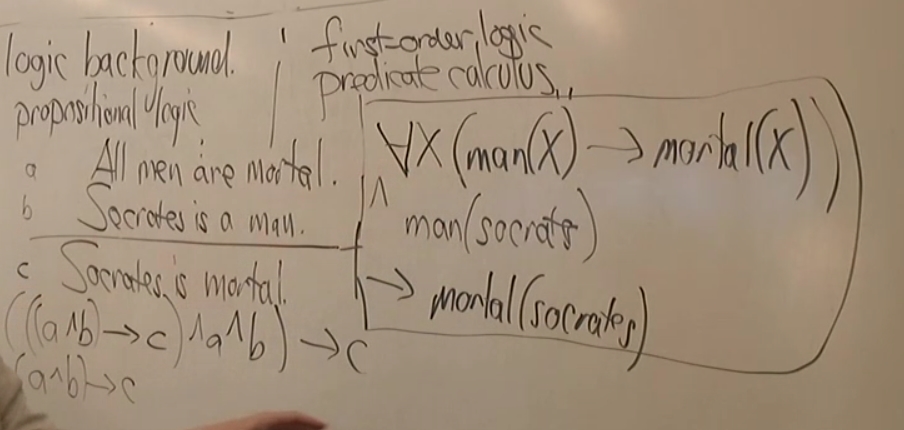 logic background.
propositional logic
a All men are mortal.
b Socrates is a man.
c Socrates is mortal.
(((a ∧ b) → c) ∧ a ∧ b) → c
(a ∧ b) → c
first-order logic
predicate calculus
∀X (man(X) → mortal(X))
∧
man(socrates)
→ mortal(socrates)